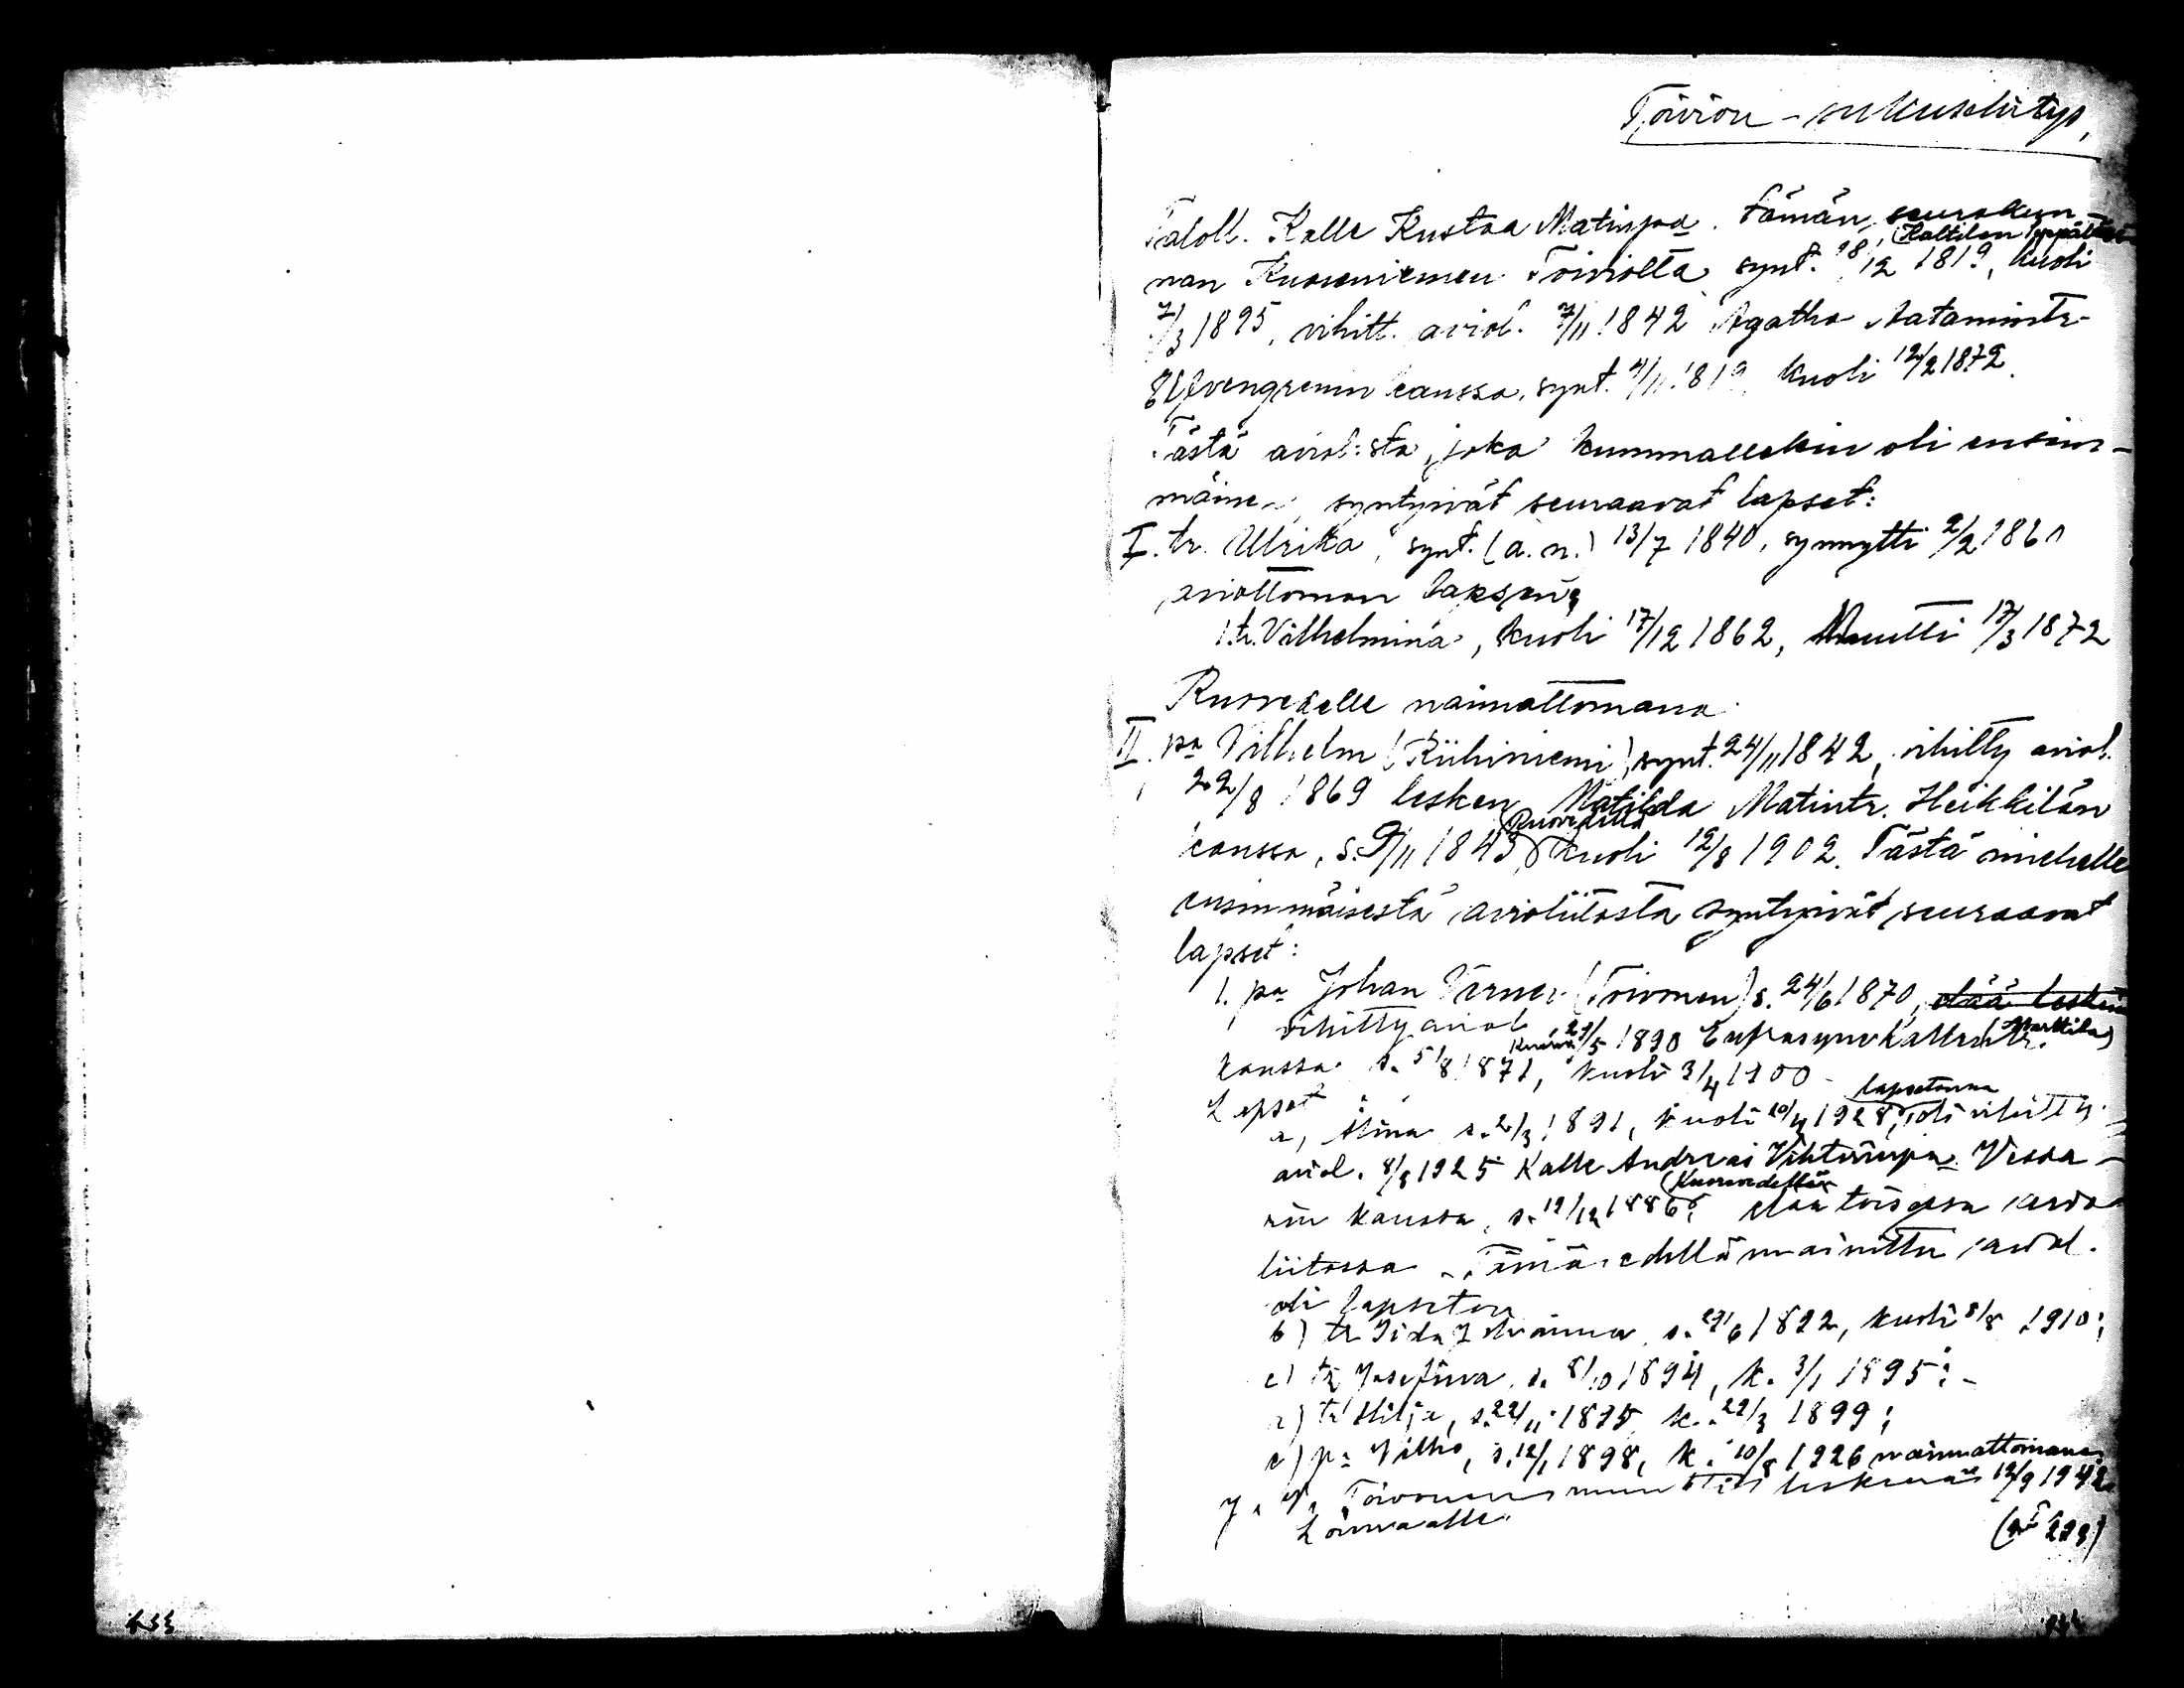 Toivion - sukuselvitys,
Taloll. Kalle Kustaa Matinpoa. Tämän seurakun-
(Kaltilan
nan Kuoreniemen Toiviolta synt. 18/12 1819, kuoli
7/3 1895, vihitt. aviol. 7/11 1842 Agatha Aatamintr.
kanssa, synt. 4/11 1819, kuoli 12/2 1872.
Tästä aviol:sta, joka kummallekin oli ensim-
mäinen, syntyivät seuraavat lapset:
I. tr. Ulrika, synt. (a.n.) 13/7 1840, synnytti 2/2 1861
aviottoman lapsen:
1. tr. Vilhelmina, kuoli 17/12 1862, Muutti 17/3 1872
Ruovedelle naimattomana.
II. pa Vilhelm (Riihiniemi), synt. 24/11 1842, vihitty aviol.
22/8 1869 lesken Matilda Matintr. Heikkilän
(Ruovedeltä
kanssa, s. 9/11 1843, kuoli 12/8 1902. Tästä miehelle
ensimmäisestä avioliitosta syntyivät seuraavat
lapset:
1. pa Johan Verner (Toivonen) s. 24/6 1870, elää leskenä
vihitty aviol. 29/5 1890 Eufrasyne Kallentr. (Marttila)
kanssa s. 5/8 1871, kuoli 3/4 1900 -
Lapset: lapsetonna
a, Alma s. 2/3 1891, kuoli 20/4 1928, oli vihitty
aviol. 8/8 1925 Kalle Andreas Vihtorinpa Vessa-
(Kuorevedellä
rin kanssa, s. 19/12 1886; elää toisessa avio-
liitossa. Tämä edellä mainittu aviol.
oli lapseton
b) tr Iida Johanna s. 29/6 1892, kuoli 8/8 1910;
c) tr Josefiina s. 8/10 1894, k. 3/1 1895; -
d) tr Hilja, s. 22/11 1895 k. 29/3 1899;
e) pa Vilho, s. 12/1 1898, k. 10/8 1926 naimattomana
J. V. Toivonen muutti leskenä 12/9 1942
Länkipohjaan